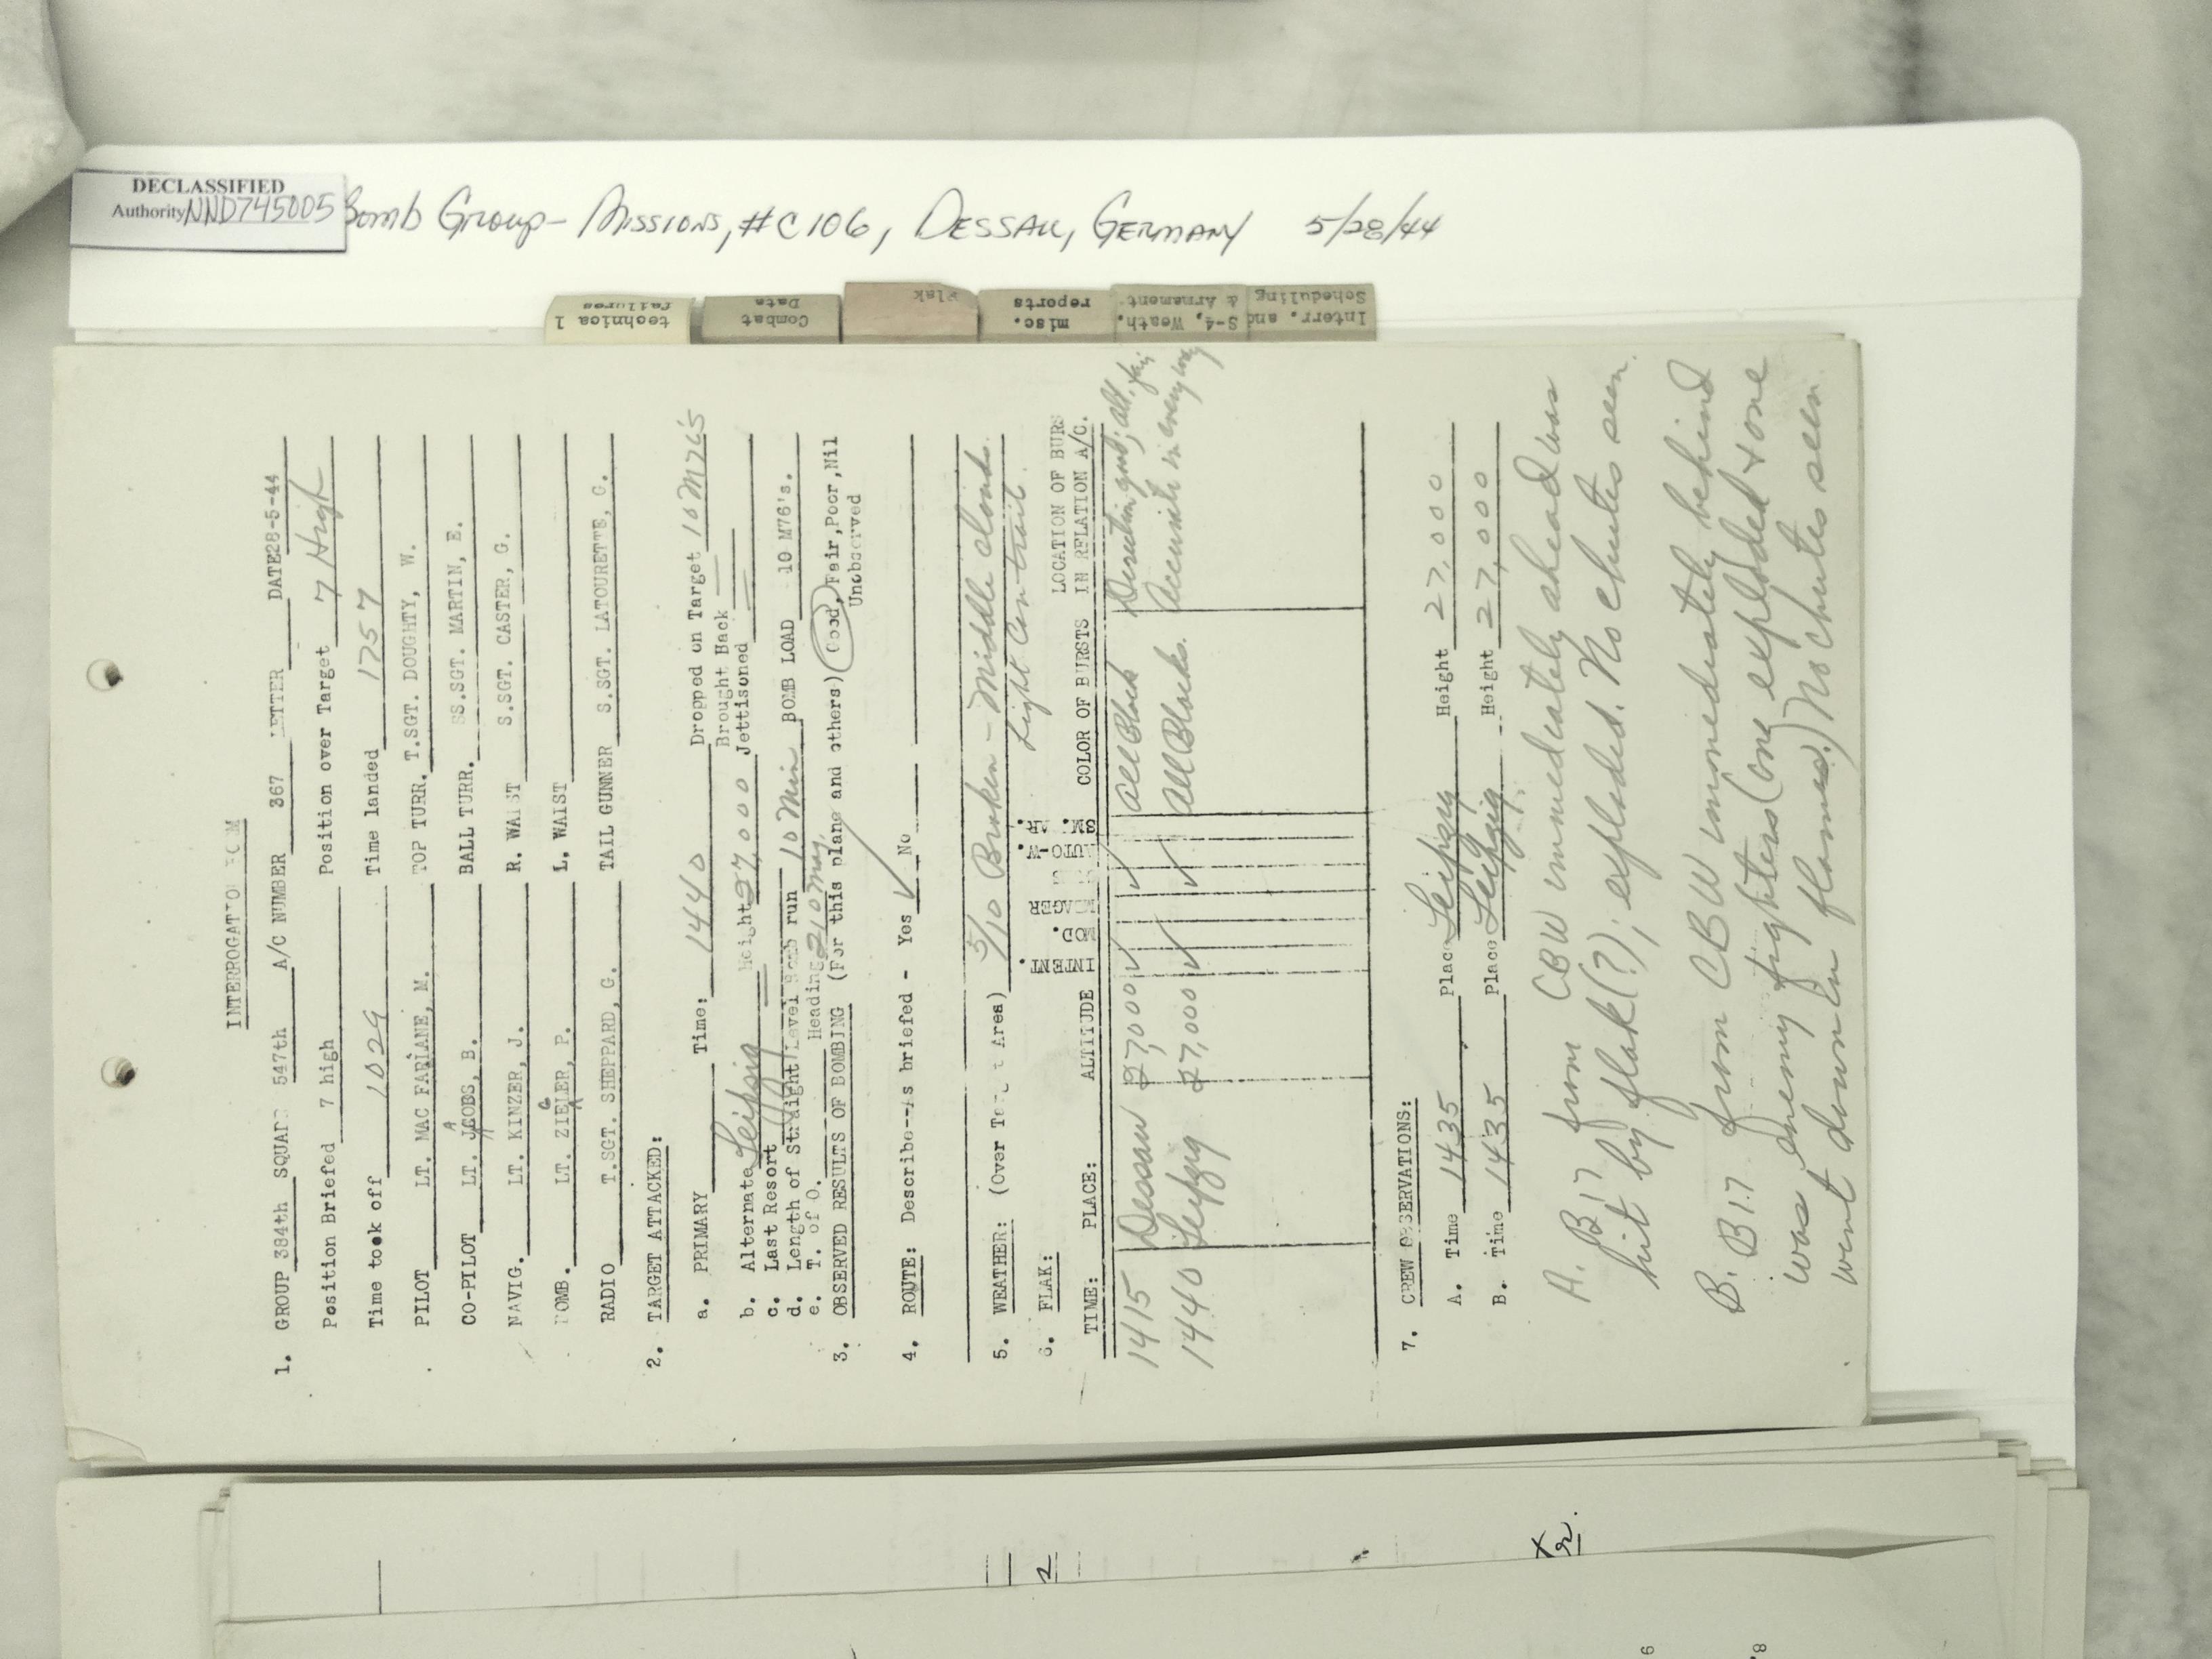 DECLASSIFIED
Authority NND745005
Bomb Group - Missions, #C106, Dessau, Germany 5/28/44
technical failures
Combat Data
Flak
misc. reports
S-4, Weath. & Armament
Interr. and Scheduling
INTERROGATION FORM
1. GROUP 384th SQUAD 547th A/C NUMBER 367 LETTER DATE 28-5-44
Position Briefed 7 high Position over Target 7 High
Time took off 1029 Time landed 1757
PILOT LT. MAC FARLANE, M. TOP TURR. T.SGT. DOUGHTY, W.
CO-PILOT LT. JACOBS, B. BALL TURR. SS.SGT. MARTIN, E.
NAVIG. LT. KINZER, J. R. WAIST S.SGT. CASTER, G.
BOMB. LT. ZIEGLER, P. L. WAIST
RADIO T.SGT. SHEPPARD, G. TAIL GUNNER S.SGT. LATOURETTE, C.
2. TARGET ATTACKED:
a. PRIMARY Time: 1440 Dropped on Target 10 M76's
Brought Back
b. Alternate Leipzig Height 27,000 Jettisoned
c. Last Resort
d. Length of Straight Level Bomb run 10 Min BOMB LOAD 10 M76's.
e. T. of O. Heading 210 Mag.
3. OBSERVED RESULTS OF BOMBING (For this plane and others) Good, Feir, Poor, Nil
Unobserved
4. ROUTE: Describe--As briefed - Yes ✓ No
5. WEATHER: (Over Target Area) 5/10 Broken - Middle clouds.
Light Con trail.
6. FLAK:
LOCATION OF BURS
TIME: PLACE: ALTITUDE INTENT. MOD. MEAGER AUTO-W. SM. AR. COLOR OF BURSTS IN RELATION A/C.
1415 Dessau 27,000 ✓ ✓ All Black
1440 Leipzig 27,000 ✓ ✓ All Blacks. Accurate in every way
7. CREW OBSERVATIONS:
A. Time 1435 Place Leipzig Height 27,000
B. Time 1435 Place Leipzig Height 27,000
A. B17 from CBW immediately ahead was
hit by flak(?); exploded. No chutes seen.
B. B17 from CBW immediately behind
was enemy fighters (one exploded & one
went down in flames.) No chutes seen.
2
9
8.